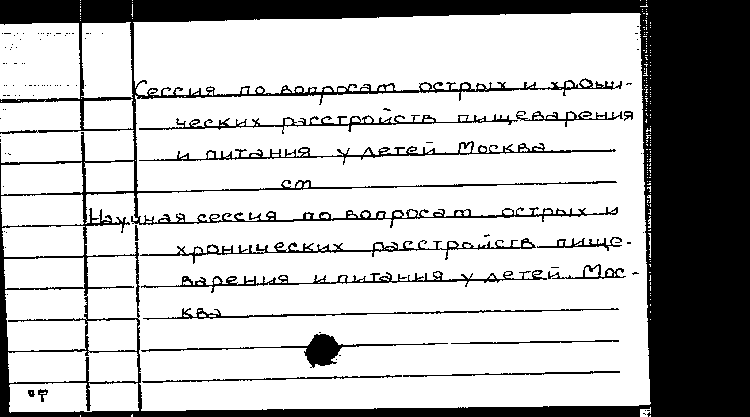 Сессия по вопросам острых и хрони-
ческих расстройств пищеварения
и питания у детей Москва
см
Научная сессия по вопросам острых и
хронических расстройств пище-
варения и питания у детей. Мос-
ква